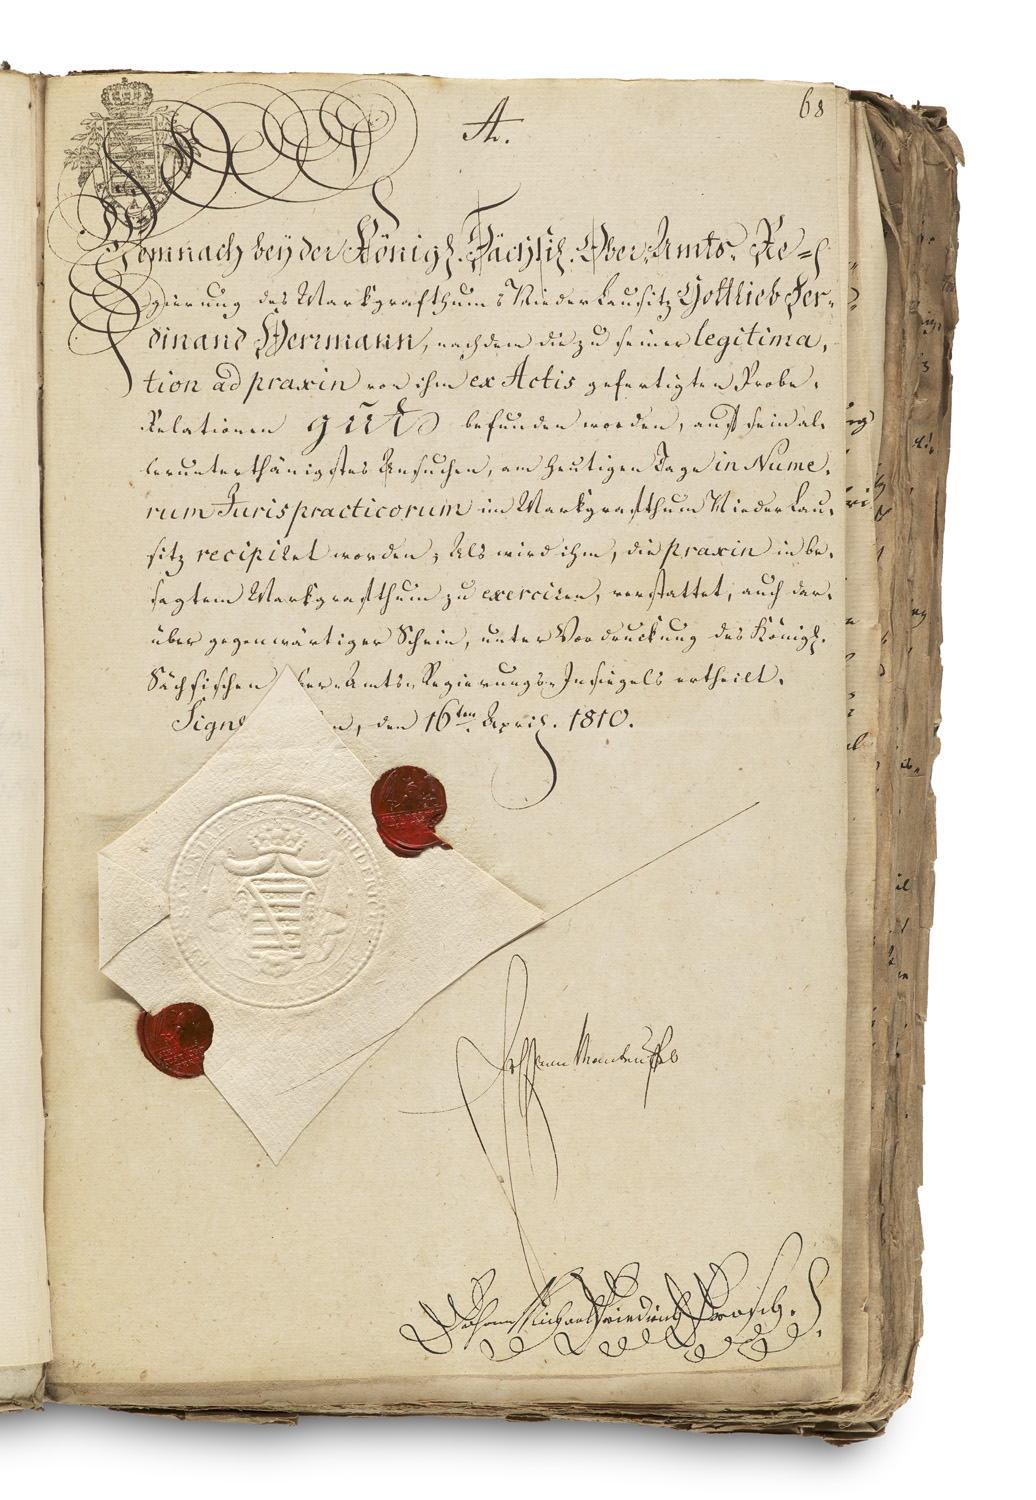 A.
68
Demnach bey der Königl. Sächsisl. Ober-Amts-Re=
gierung des Markgrafthums Niederlausitz Gottlieb Fer-
dinand Herrmann, nachdem die zu seiner legitima-
tion ad praxin von ihm ex Actis gefertigten Probe-
Relationen gut befunden worden, auf sein al-
lerunterthänigstes Ansuchen, am heutigen Tage in Nume-
rum Juris practicorum im Markgrafthum Niederlau-
sitz recipiret worden; Als wird ihm, die praxin in be-
sagtem Markgrafthum zu exerciren, verstattet, auch dar-
über gegenwärtiger Schein, unter Vordruckung des Königl.
Sächsischen Amts-Regierungs-Insiegels ertheilt.
den 16ten April. 1810.
Johann Michael Friedrich